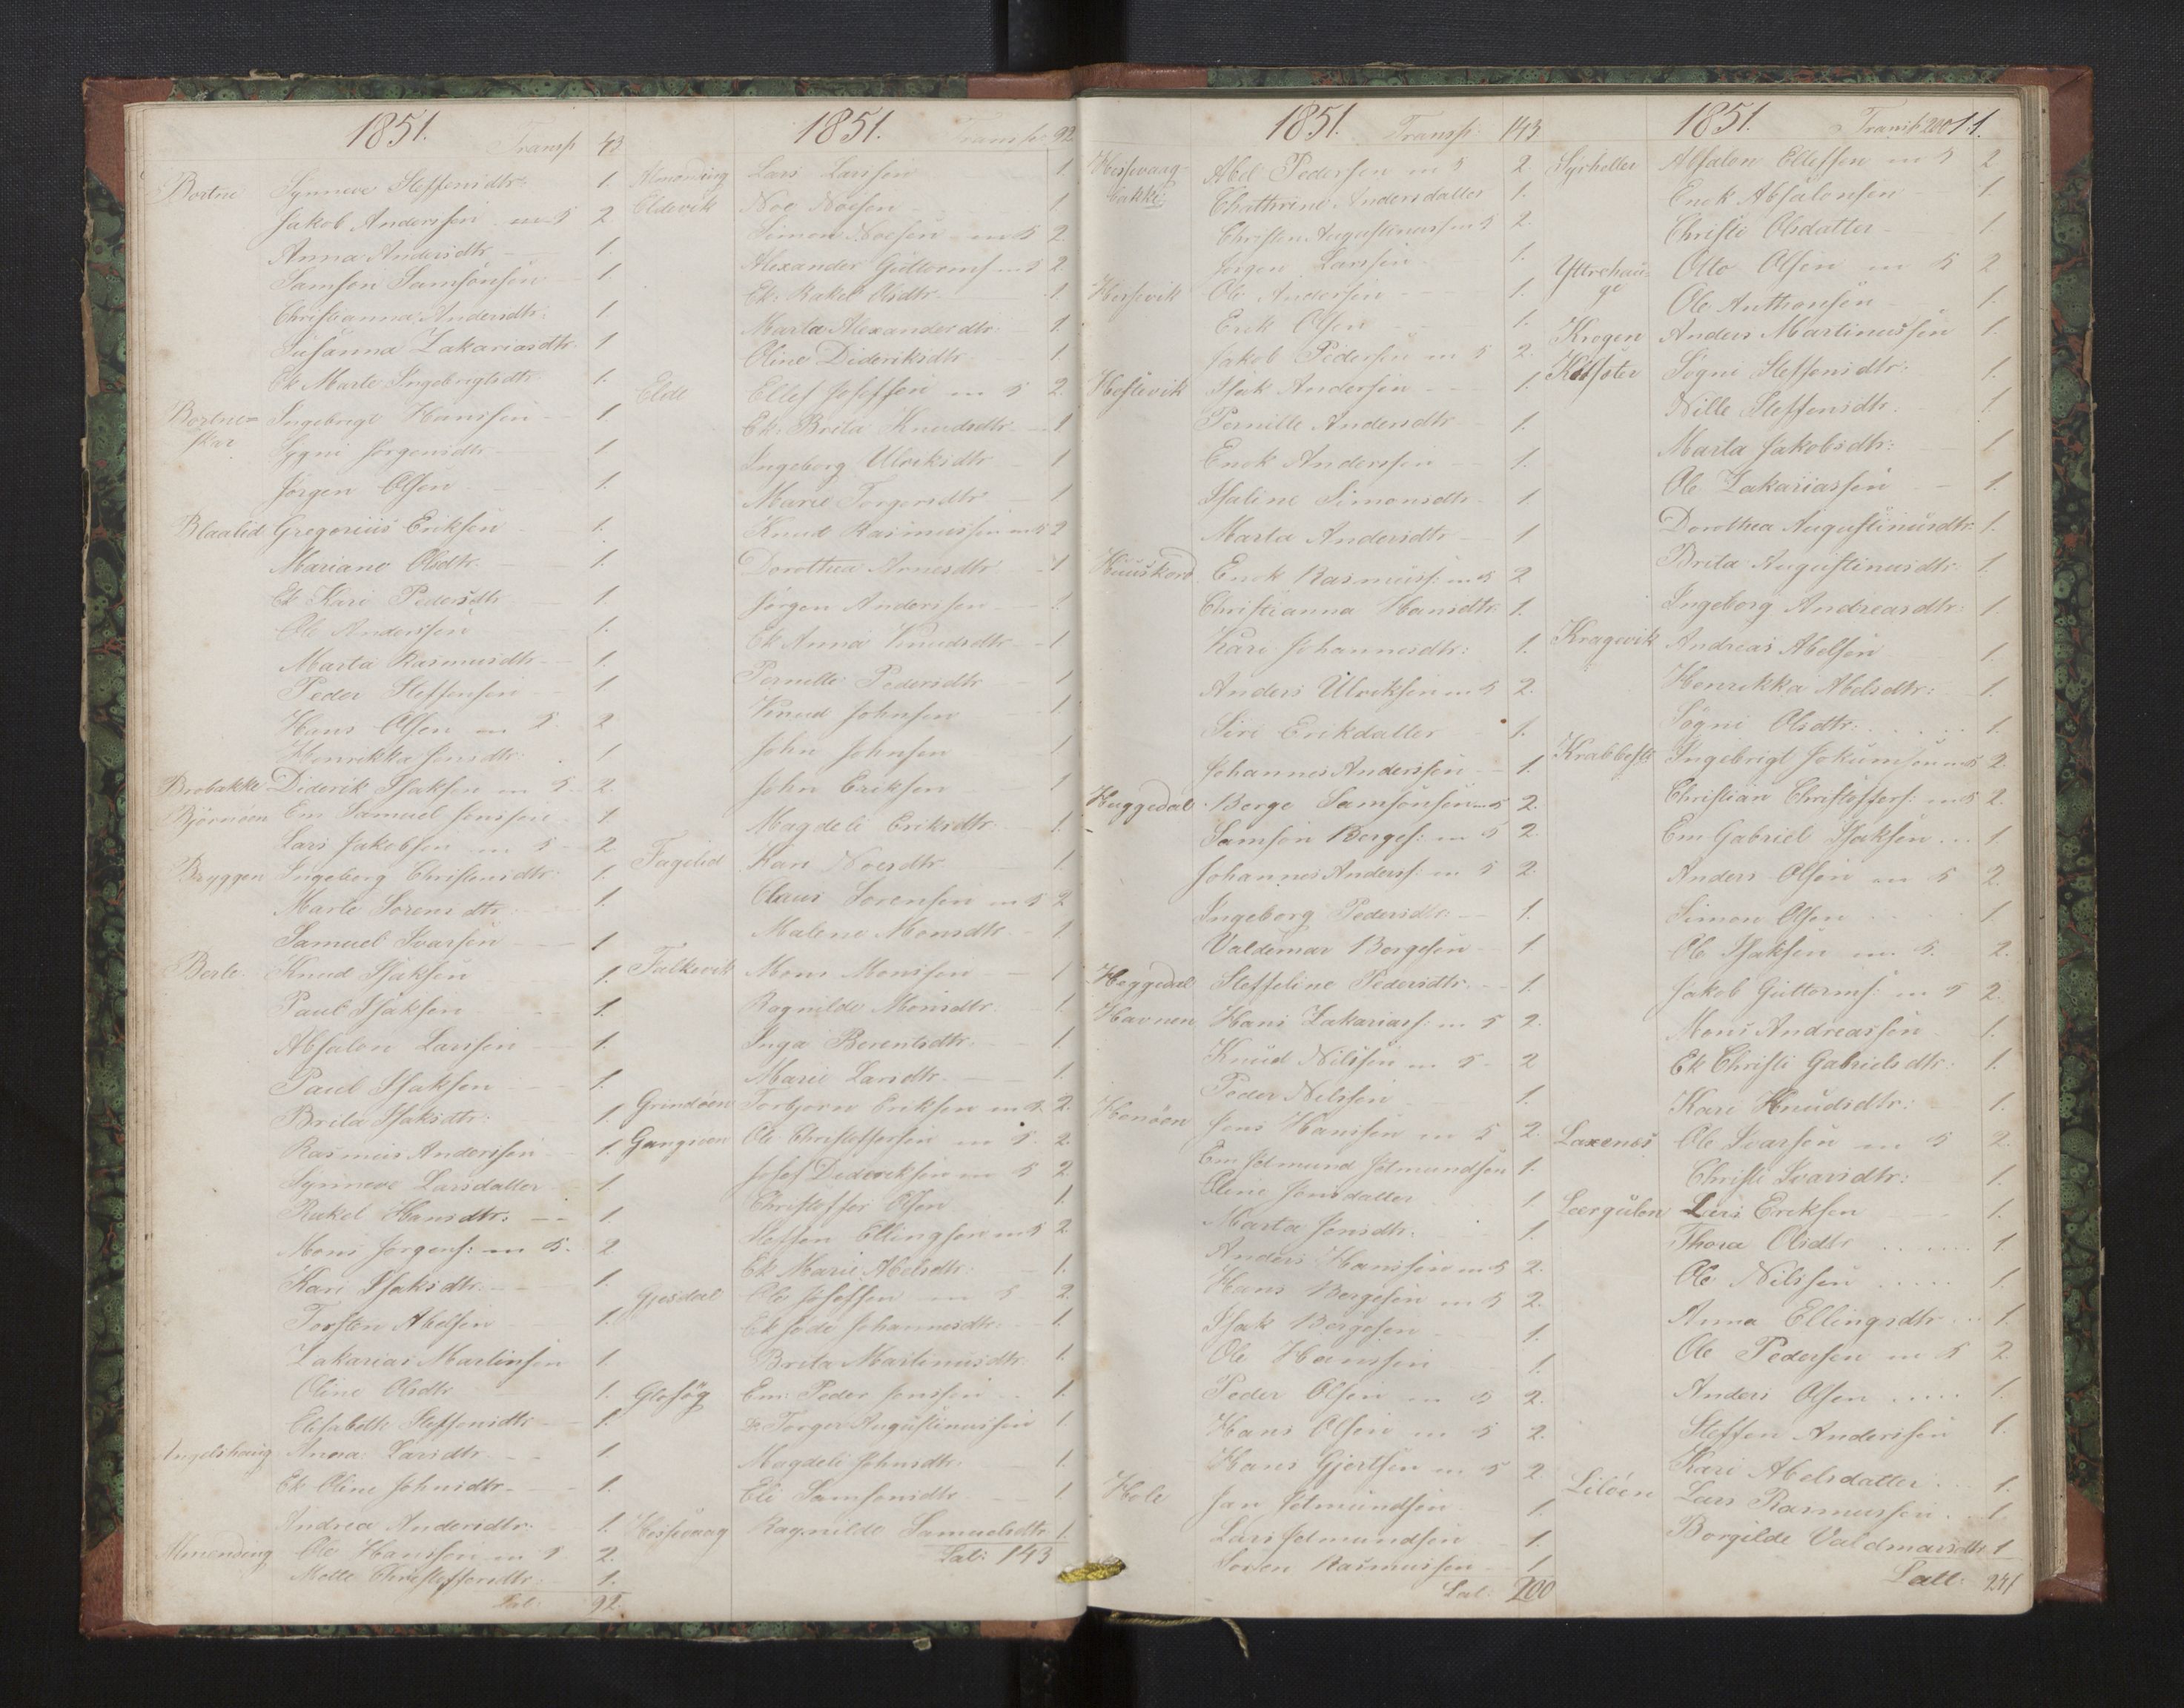 1851. Transp 43
Bortne Synneve Steffensdtr: 1.
Jakob Anderssen m 5 2
Anna Andersdtr 1.
Samson Samsonsen 1.
Christianna Andersdtr: 1
Susanna Zakariasdtr 1
Ek Marte Ingebrigtsdtr: 1.
Bortne= Ingebrigt Hanssen 1
skar Sygni Jørgensdtr 1
Jørgen Olsen 1.
Blaalid Gregorius Eriksen 1.
Mariane Olsdtr. 1.
Ek Kari Pedersdtr 1.
Ole Anderssen 1.
Marta Rasmusdtr 1.
Peder Steffensen 1
Hans Olsen m 5. 2
Henrikka Jensdtr. 1
Brobakke Diderik Isaksen m 5 2.
Bjørnøen Em Samuel Jenssen 1
Lars Jakobsen m 5 2
Bryggen Ingeborg Christensdtr: 1.
Marte Sørensdtr 1.
Samuel Ivarsen 1
Berle Knud Isaksen 1.
Paul Isaksen 1.
Absalon Larssen 1.
Paul Isaksen 1.
Brita Isaksdtr: 1
Rasmus Anderssen 1.
Synneve Larsdatter 1.
Rakel Hansdtr: 1.
Mons Jørgens: m 5. 2
Kari Isaksdtr: 1.
Torsten Abelsen 1.
Zakarias Martinsen 1.
Oline Olsdtr 1.
Elisabeth Steffensdtr 1.
Ingelshaug Anna Larsdtr 1.
Ek Oline Johnsdtr 1.
Andrea Andersdtr. 1.
Almending Ole Hanssen m 5 2.
Mette Christoffersdtr: 1.
Lat: 92.
1851. Transp: 92
Almending Lars Larssen 1
Eldevik Noe Noesen 1.
Simon Noesen m 5 2
Alexander Guttorms m 5 2
Ek. Rakel Olsdtr 1
Marta Alexandersdtr: 1.
Oline Dideriksdtr 1.
Elde Ellef Josefsen m 5 2.
Ek: Brita Knudsdtr 1
Ingeborg Ulriksdtr 1
Marie Torgersdtr 1
Knud Rasmussen m 5 2
Dorothea Arnesdtr 1
Jørgen Anderssen 1
Ek Anna Knudsdtr 1
Pernille Pedersdtr 1
Knud Johnsen 1.
John Johnsen 1
John Eriksen 1
Magdeli Eriksdtr 1.
Fagelid Kari Noesdtr 1.
Claus Sørensen m 5 2
Malene Monsdtr. 1
Falkevik Mons Monssen 1
Ragnilde Monsdtr. 1.
Inga Berentsdtr. 1.
Marie Larsdtr. 1.
Grindøen Torbjørn Eriksen m 5. 2.
Gangsøen Ole Christoffersen m 5. 2
Josef Dideriksen m 5 2
Christoffer Olsen 1.
Steffen Ellingsen m 5 2
Ek Marie Abelsdtr: 1.
Gjesdal Ole Josefsen m 5 2.
Ek Jode Johannesdtr. 1.
Brita Martinusdtr: 1.
Em: Peder Jenssen 1.
Torger Augustinussen 1
Magdeli Johnsdtr. 1.
Eli Samsonsdtr 1
Ragnilde Samuelsdtr 1.
Lat: 143
1851. Transp: 143
Abel Pedersen m 5 2.
bakke: Chathrine Andersdatter 1.
Christen Augustinuss m 5 2.
Jørgen Larssen 1.
Ole Anderssen 1.
Erik Olsen 1.
Jakob Pedersen m 5 2.
Isak Anderssen 1.
Pernille Andersdtr 1.
Enok Anderssen 1.
Isaline Simonsdtr. 1
Marta Andersdtr 1
Enok Rasmuss: m 5 2
Christianna Hansdtr: 1.
Kari Johannesdtr: 1.
Anders Ulriksen m 5 2.
Siri Erikdatter 1.
Johannes Anderssen 1.
Huggedal Børge Samsonsen m 5 2.
Samson Børges: m 5 2.
Johannes Anderss: m 5 2.
Ingeborg Pedersdtr: 1.
Valdemar Børgesen 1
Heggedal Steffeline Pedersdtr. 1.
Havnen Hans Zakariass: m 5 2.
Knud Nilssen m 5 2
Peder Nilssen 1.
Henøen Jens Hanssen m 5 2.
Em Jetmund Jetmundsen 1.
Oline Jensdatter 1.
Marta Jensdtr. 1.
Anders Hanssen m 5 2.
Hans Børgesen m 5 2.
Isak Børgesen 1.
Ole Hanssen 1.
Peder Olsen m 5 2.
Hans Olsen m 5 2.
Hans Gjertsen m 5 2.
Hole Jan Jetmundsen 1.
Lars Jetmundsen 1.
Søren Rasmussen 1
Lat: 200
1851. Transp 200 1.1.
Hyrholler Absalon Ellefsen m 5 2
Enok Absalonsen 1
Christi Olsdatter 1
Yttrehau= Otto Olsen m 5 2
ge Ole Anthonsen 1.
Krogen Anders Martinussen 1.
Søgni Steffensdtr: 1.
Nille Steffensdtr. 1
Marta Jakobsdtr: 1
Ole Zakariassen 1.
Dorothea Augustinusdtr: 1.
Brita Augustinusdtr: 1.
Ingeborg Andreasdtr: 1.
Kragevik Andreas Abelsen 1.
Henrikka Abelsdtr: 1.
Søgni Olsdtr: 1.
Krabbesti Ingebrigt Jokumsen m 5 2.
Christian Christoffers: m 5 2.
Em Gabriel Isaksen 1
Anders Olsen m 5 2.
Simon Olsen 1
Ole Isaksen m 5. 2.
Jakob Guttorms: m 5 2
Mons Andreassen 1.
Ek Christi Gabrielsdtr: 1.
Kari Knudsdtr: 1.
Laxenes Ole Ivarsen m 5 2.
Christi Ivarsdtr: 1.
Leergulen Lars Eriksen 1.
Thora Olsdtr 1
Ole Nilssen 1
Anna Ellingsdtr 1.
Ole Pedersen m 5 2
Anders Olsen 1.
Steffen Anderssen 1.
Kari Abelsdatter 1.
Liløen Lars Rasmussen 1
Borgilde Valdmarsdtr 1
Latt. 251